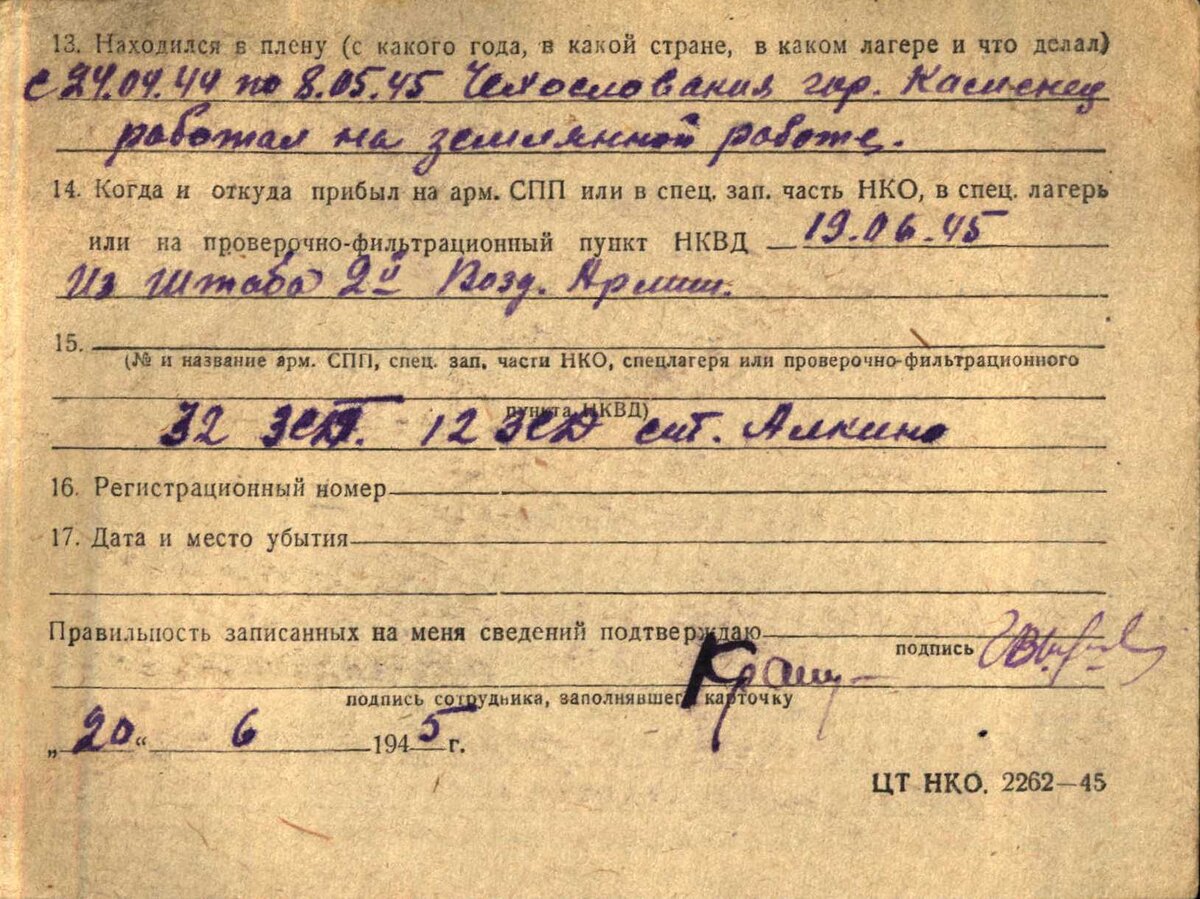 13. Находился в плену (с какого года, в какой стране, в каком лагере и что делал)
с 24.04.44 по 8.05.45 Чехословакия гор. Каменец
работал на землянной работе.
14. Когда и откуда прибыл на арм. СПП или в спец. зап. часть НКО, в спец. лагерь
или на проверочно-фильтрационный пункт НКВД 19.06.45
Из штаба 2й Возд. Армии.
15.
(№ и название арм. СПП, спец. зап. части НКО, спецлагеря или проверочно-фильтрационного
пункта НКВД)
32 ЗСП. 12 ЗСД ст. Алкино
16. Регистрационный номер
17. Дата и место убытия
Правильность записанных на меня сведений подтверждаю
подпись
подпись сотрудника, заполнявшего карточку
„20“ 6 1945 г.
ЦТ НКО. 2262—45